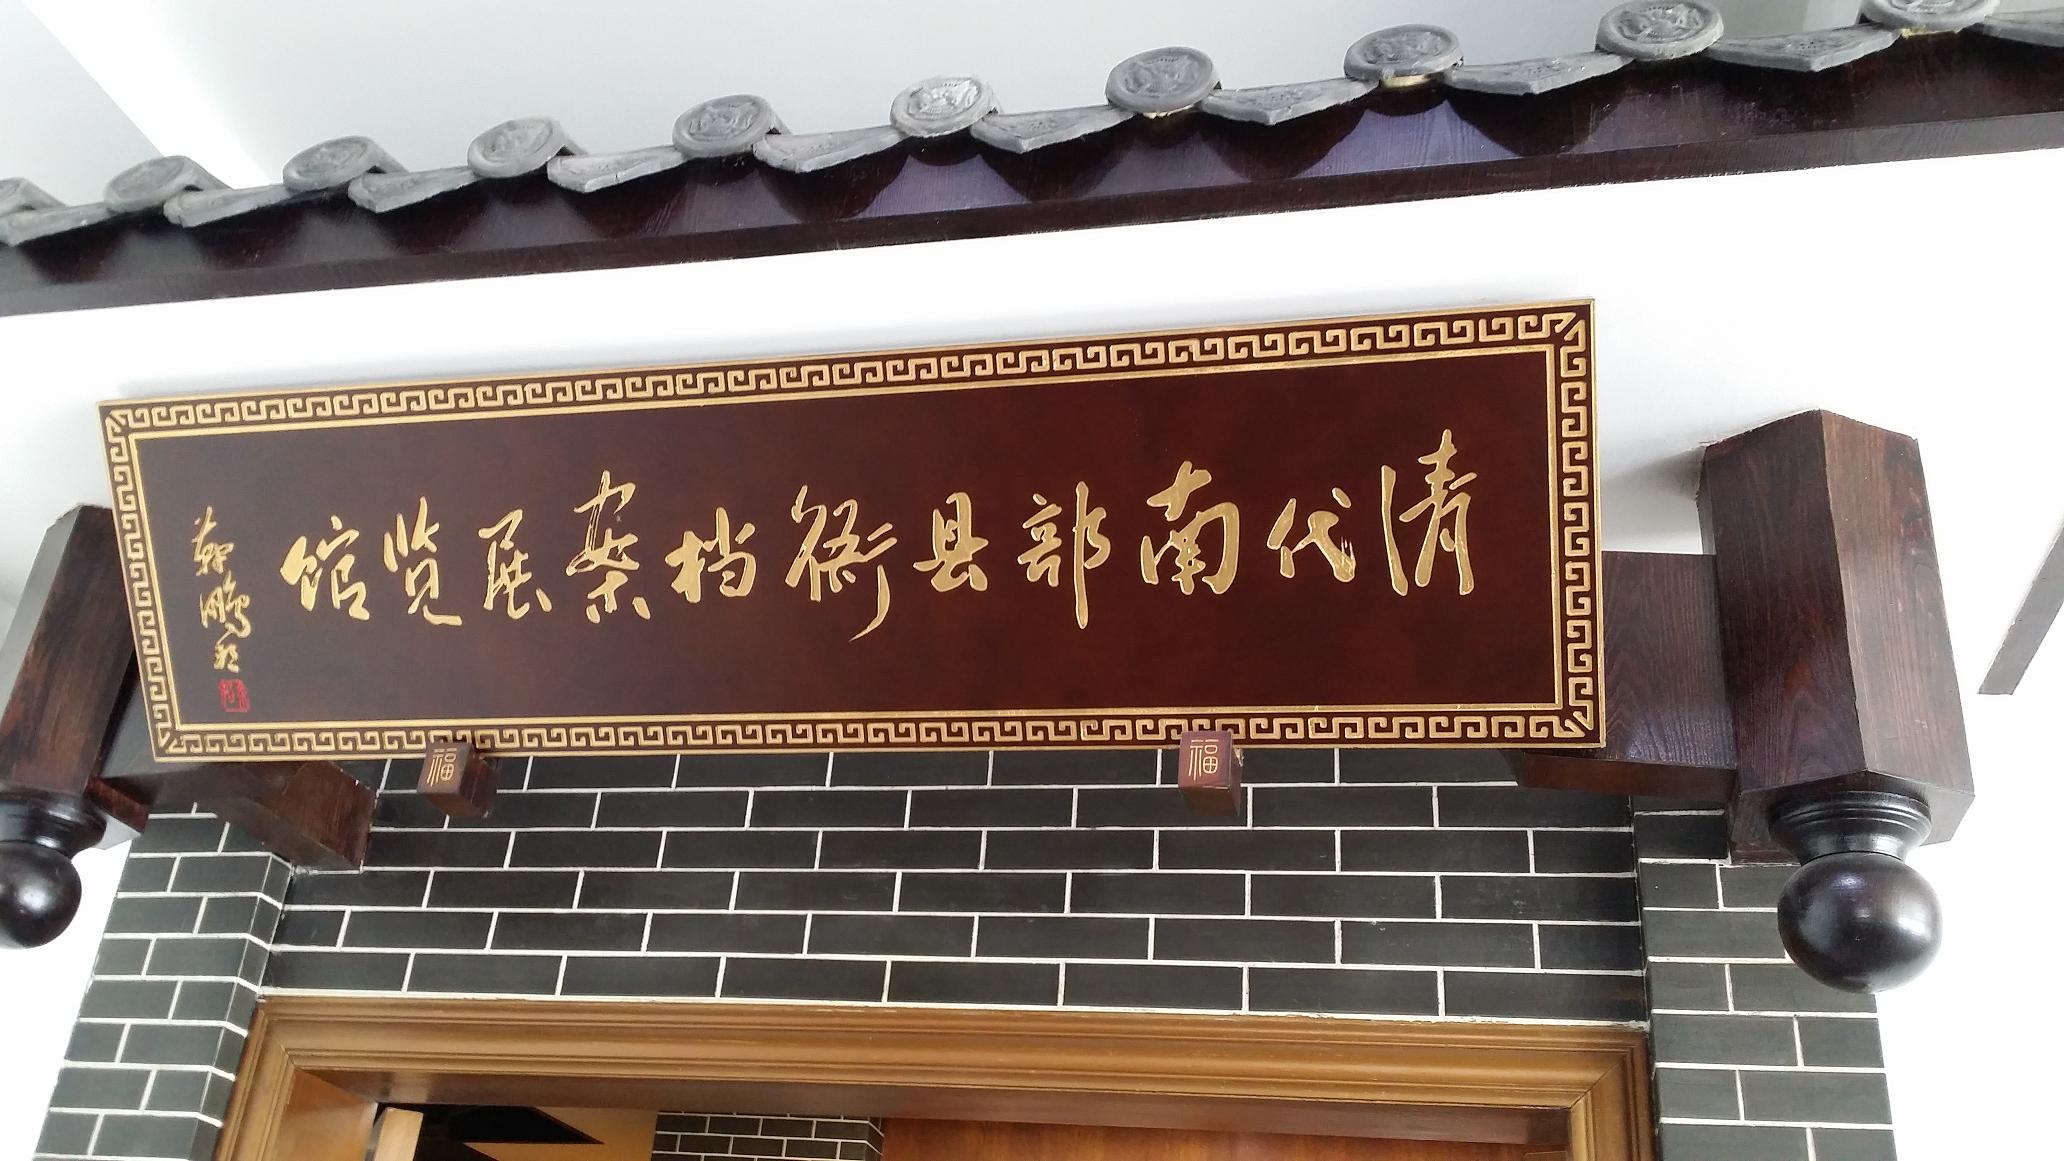 清代南部县衙档案展览馆
福
福